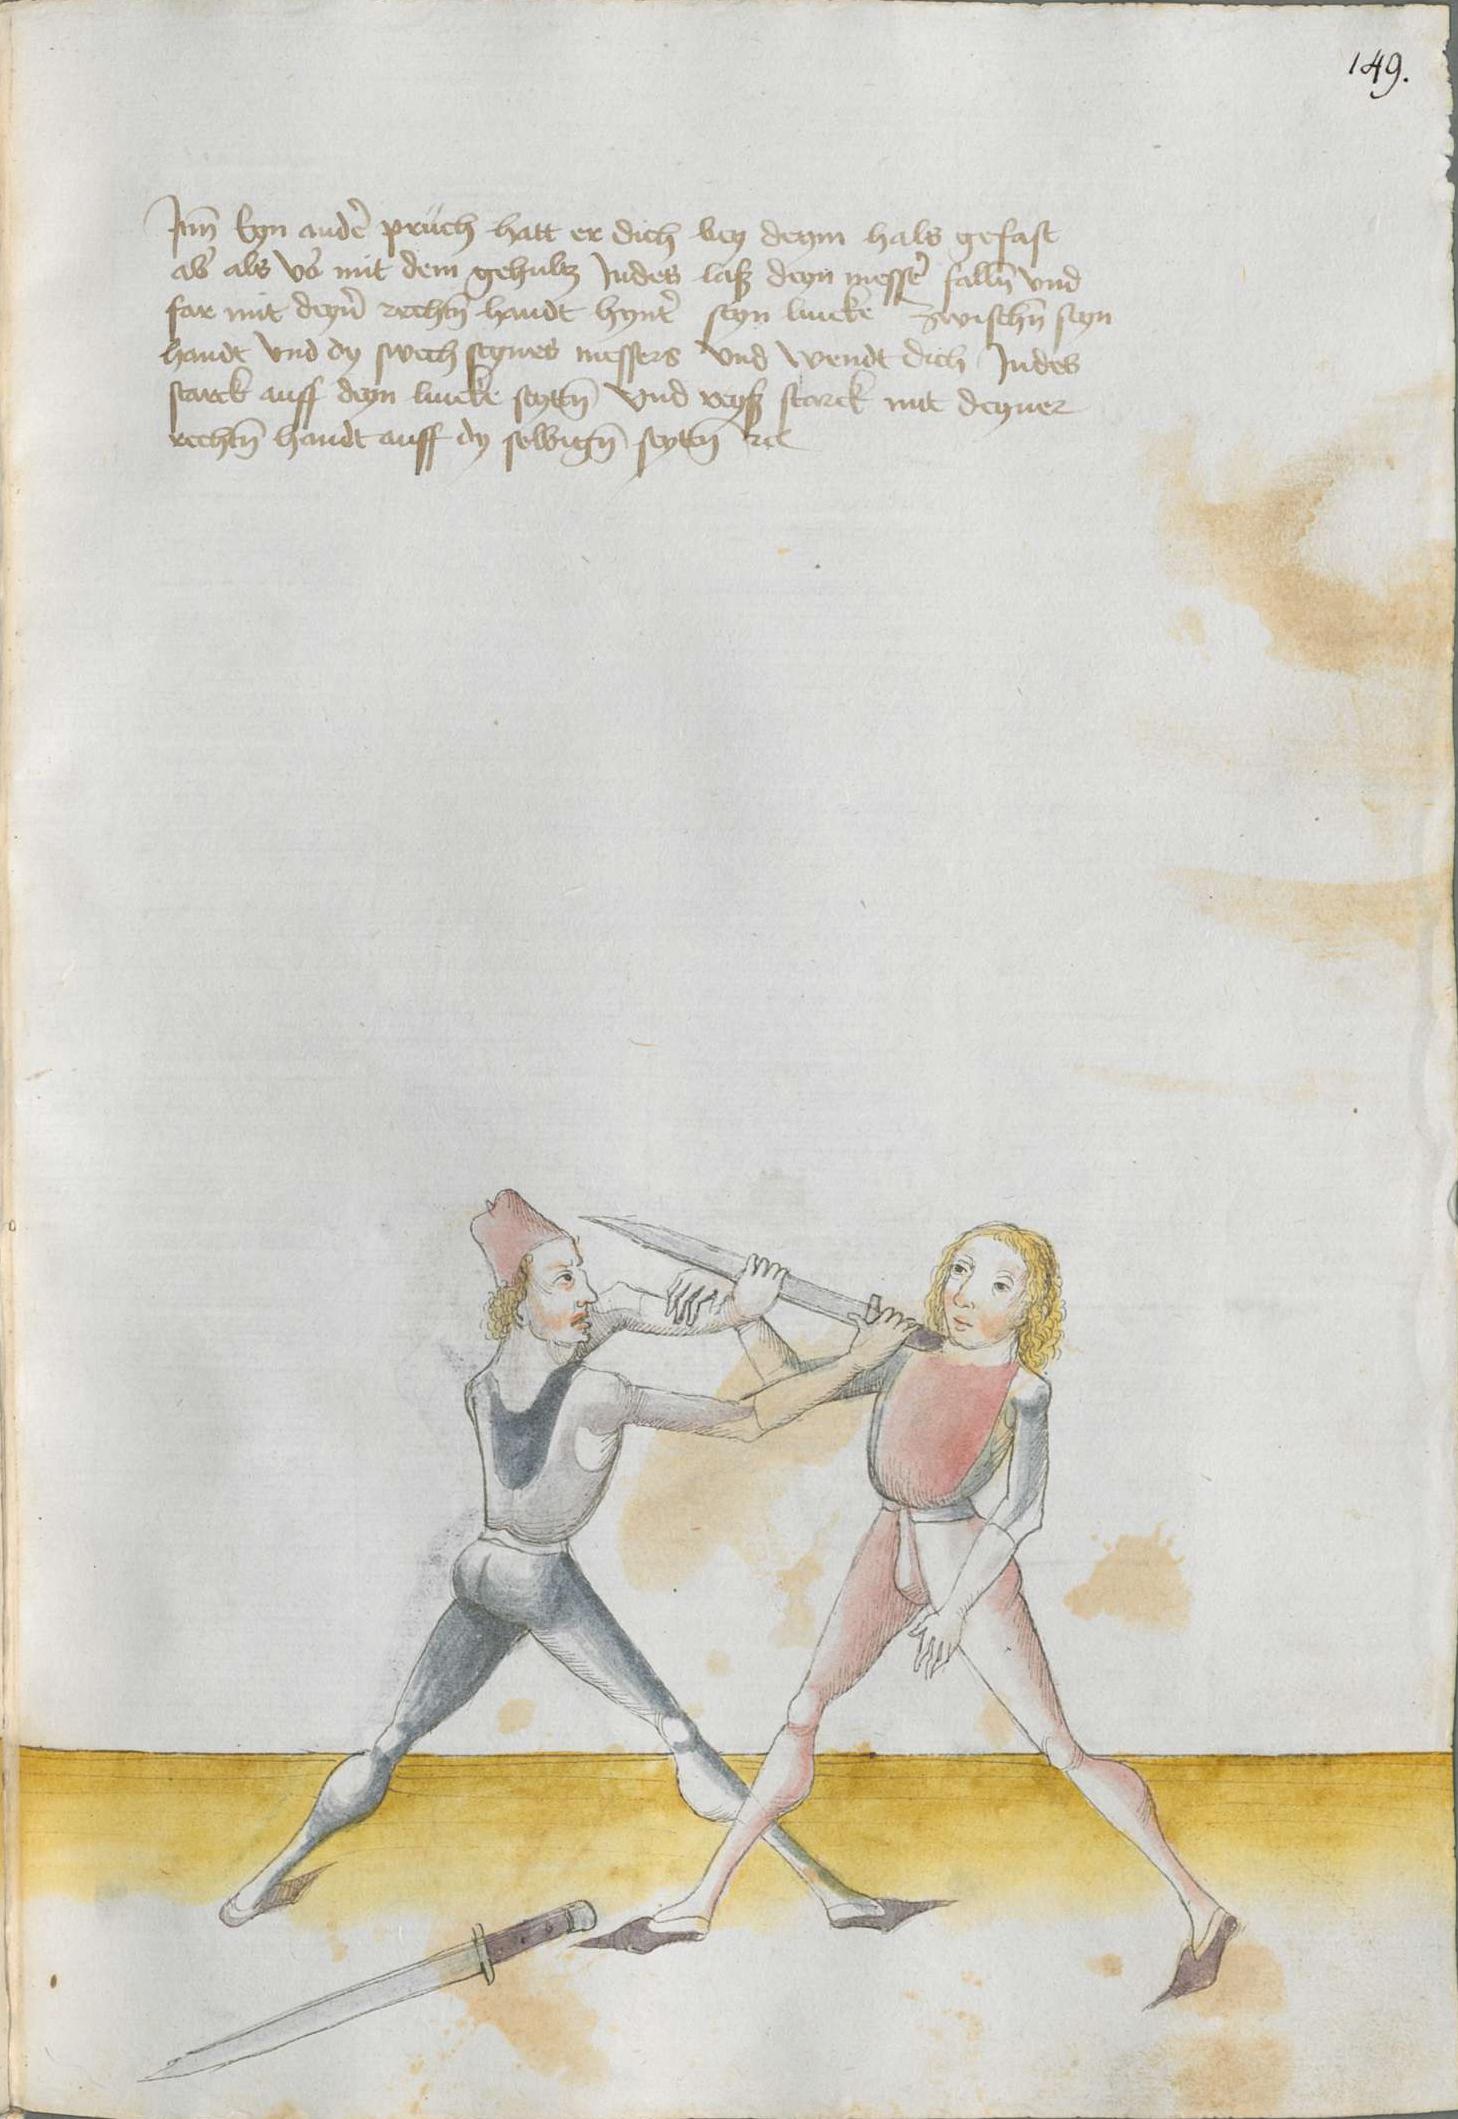 149.
Jtm̃ Eyn ander̃ prüch hatt er dich bey deym hals gefast
als vo᷑ mit dem gehultz Jndes laß deyn messer̃ falln̄ vnd
far mit deyner̃ rechtn̄ handt hynter̃ seyn lincke zwischn̄ seyn
handt vnd dy swech seynes messers vnd wendt dich Jndes
starck auff deyn lincke seyttn̄ vnd reyß starck mit deyner
rechtn̄ handt auff dy selbign̄ seyttn̄ ꝛc